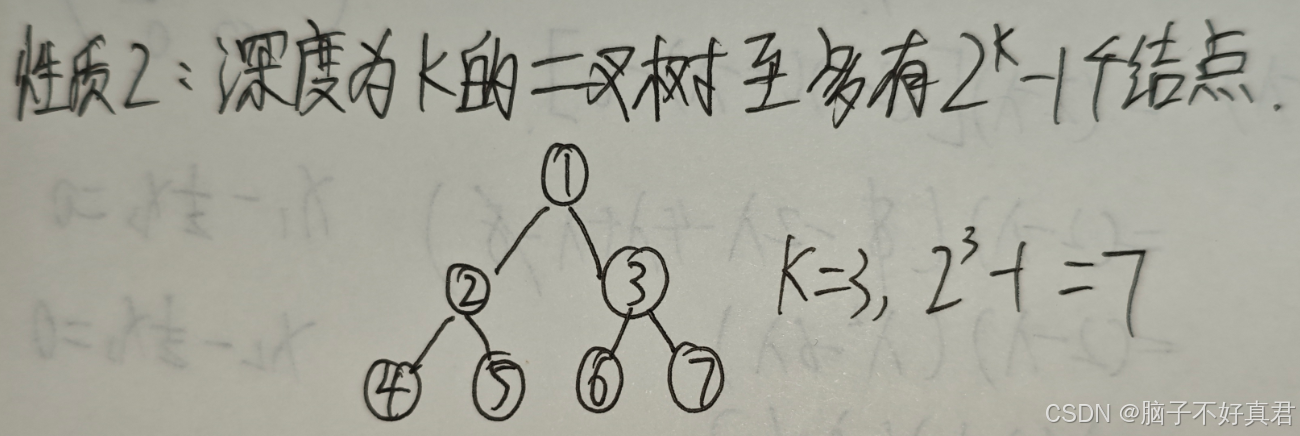 性质2：深度为K的二叉树至多有2^K-1个结点.
①
② ③
K=3, 2^3-1=7
④ ⑤ ⑥ ⑦
CSDN @脑子不好真君